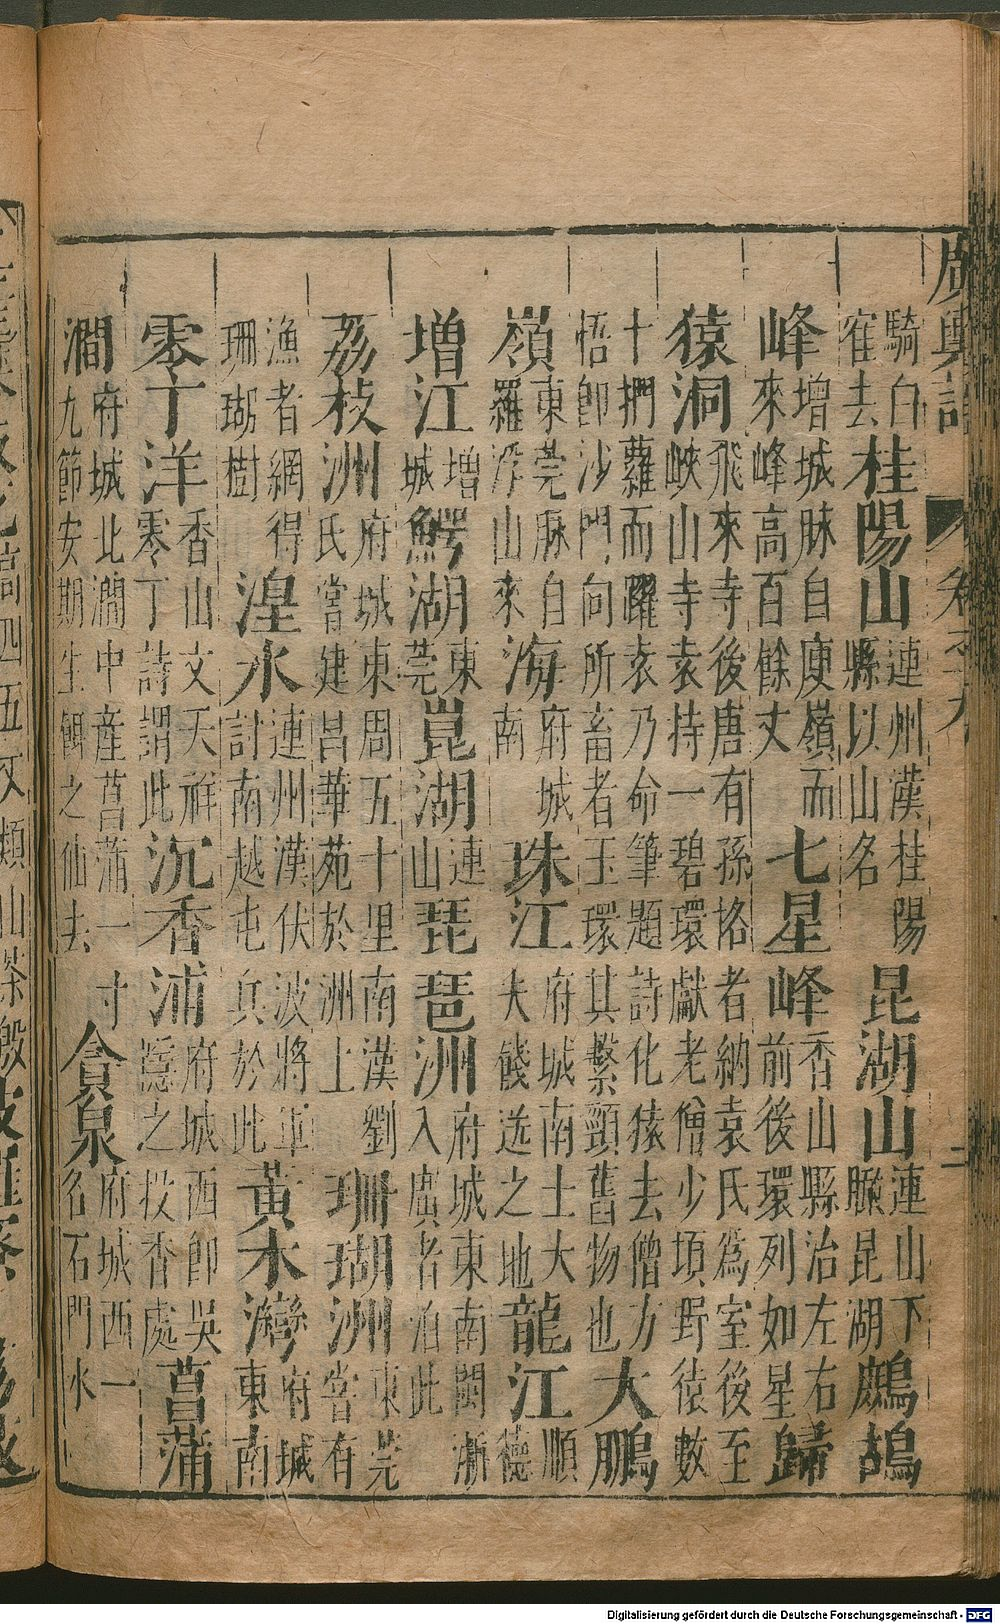 廣輿記 卷之十九 二
騎白隺去桂陽山連州漢桂陽縣以山名昆湖山連山下瞰昆湖鷓鴣
峰增城脉自庾嶺而來峰高百餘丈七星峰香山縣治左右前後環列如星歸
猿洞飛來寺後唐有孫恪者納袁氏爲室後至峽山寺袁持一碧環獻老僧少頃野猿數
十捫蘿而躍袁乃命筆題詩化猿去僧方悟卽沙門向所畜者玉環其繫頸舊物也大鵬
嶺東莞脉自羅浮山來海府城南珠江府城南士大夫餞送之地龍江順德
增江增城鰐湖東莞崑湖連山琵琶洲府城東南閩浙入廣者泊此
荔枝洲府城東周五十里南漢劉氏嘗建昌華苑於洲上珊瑚洲東莞嘗有
漁者網得珊瑚樹湟水連州漢伏波將軍討南越屯兵於此黃木灣府城東南
零丁洋香山文天祥零丁詩謂此沉香浦府城西卽吳隱之投香處菖蒲
澗府城北澗中産菖蒲一寸九節安期生餌之仙去貪泉府城西一名石門水
Digitalisierung gefördert durch die Deutsche Forschungsgemeinschaft - DFG